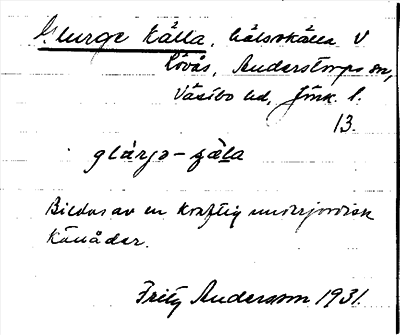 Glurge källa, hälsokälla V
Lövås, Anderstorps sn,
Västbo hd, Jönk. l.
13.
glärjə-ɕäla
Bildas av en kraftig underjordisk
källåder.
Fritz Andersson 1931.